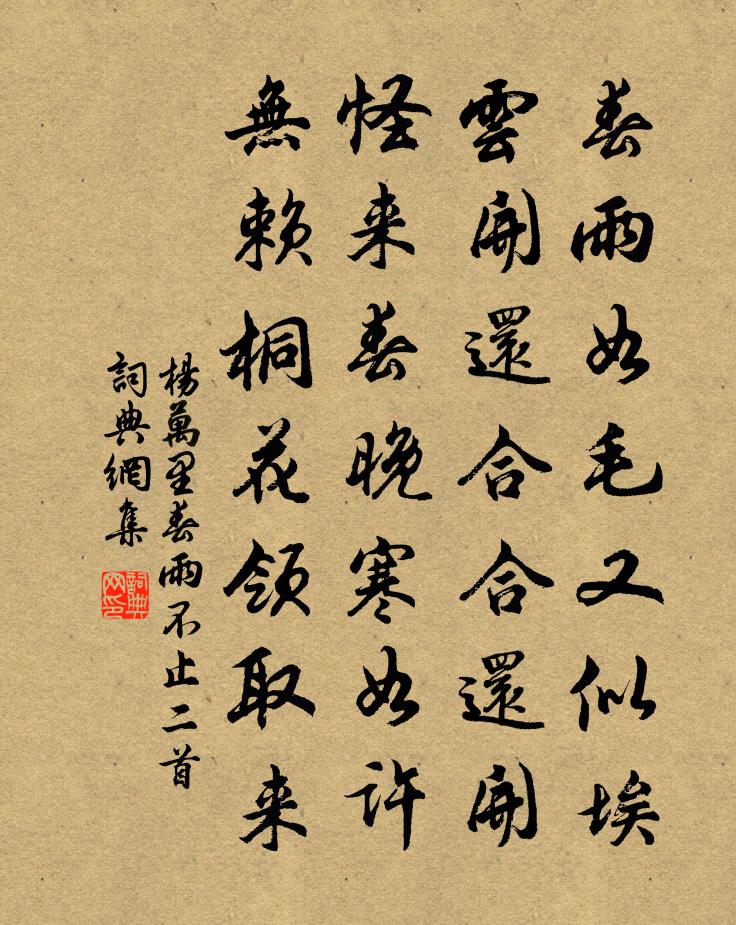 春雨如毛又似埃
雲開還合合還開
怪来春晚寒如許
無賴桐花領取来
楊萬里春雨不止二首
詞典網集
詞典网印